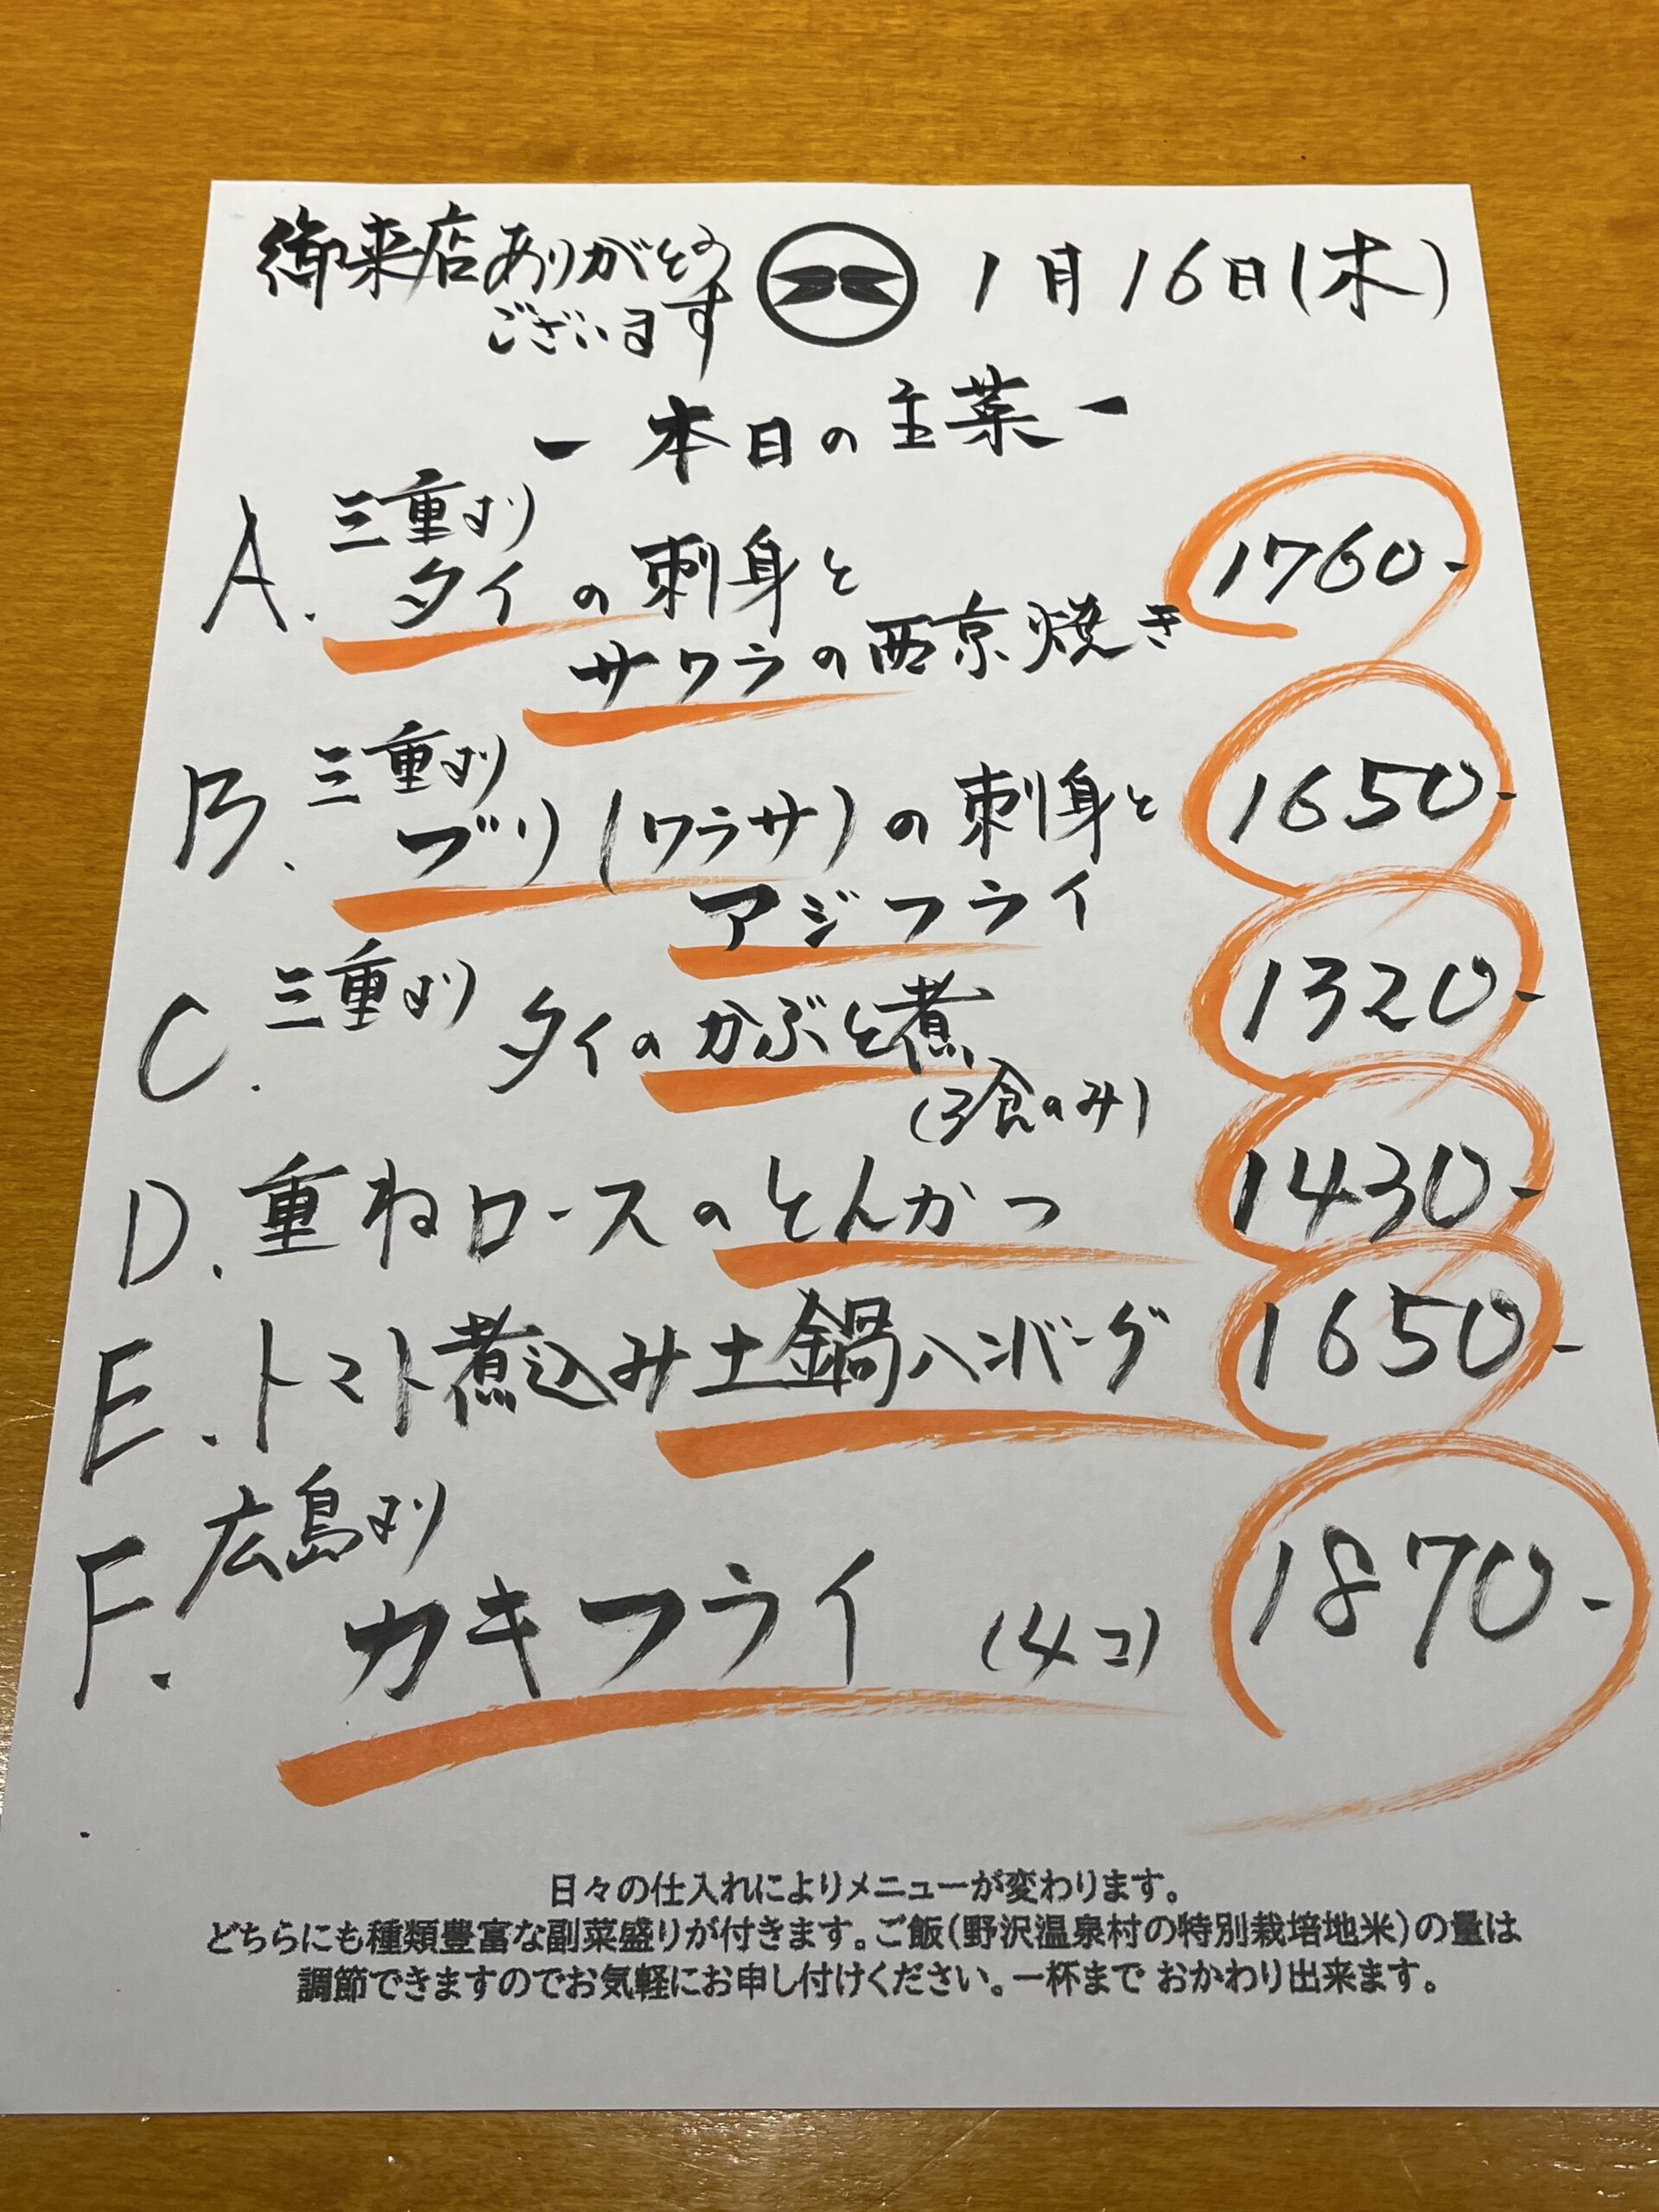 御来店ありがとう
ございます
1月16日(木)
ー本日の主菜ー
A. 三重より
タイの刺身と
サワラの西京焼き
1760-
B. 三重より
ブリ(ワラサ)の刺身と
アジフライ
1650-
C. 三重より タイのかぶと煮
(3食のみ)
1320-
D. 重ねロースのとんかつ 1430-
E. トマト煮込み土鍋ハンバーグ 1650-
F. 広島より
カキフライ (4コ) 1870-
日々の仕入れによりメニューが変わります。
どちらにも種類豊富な副菜盛りが付きます。ご飯(野沢温泉村の特別栽培地米)の量は
調節できますのでお気軽にお申し付けください。一杯まで おかわり出来ます。